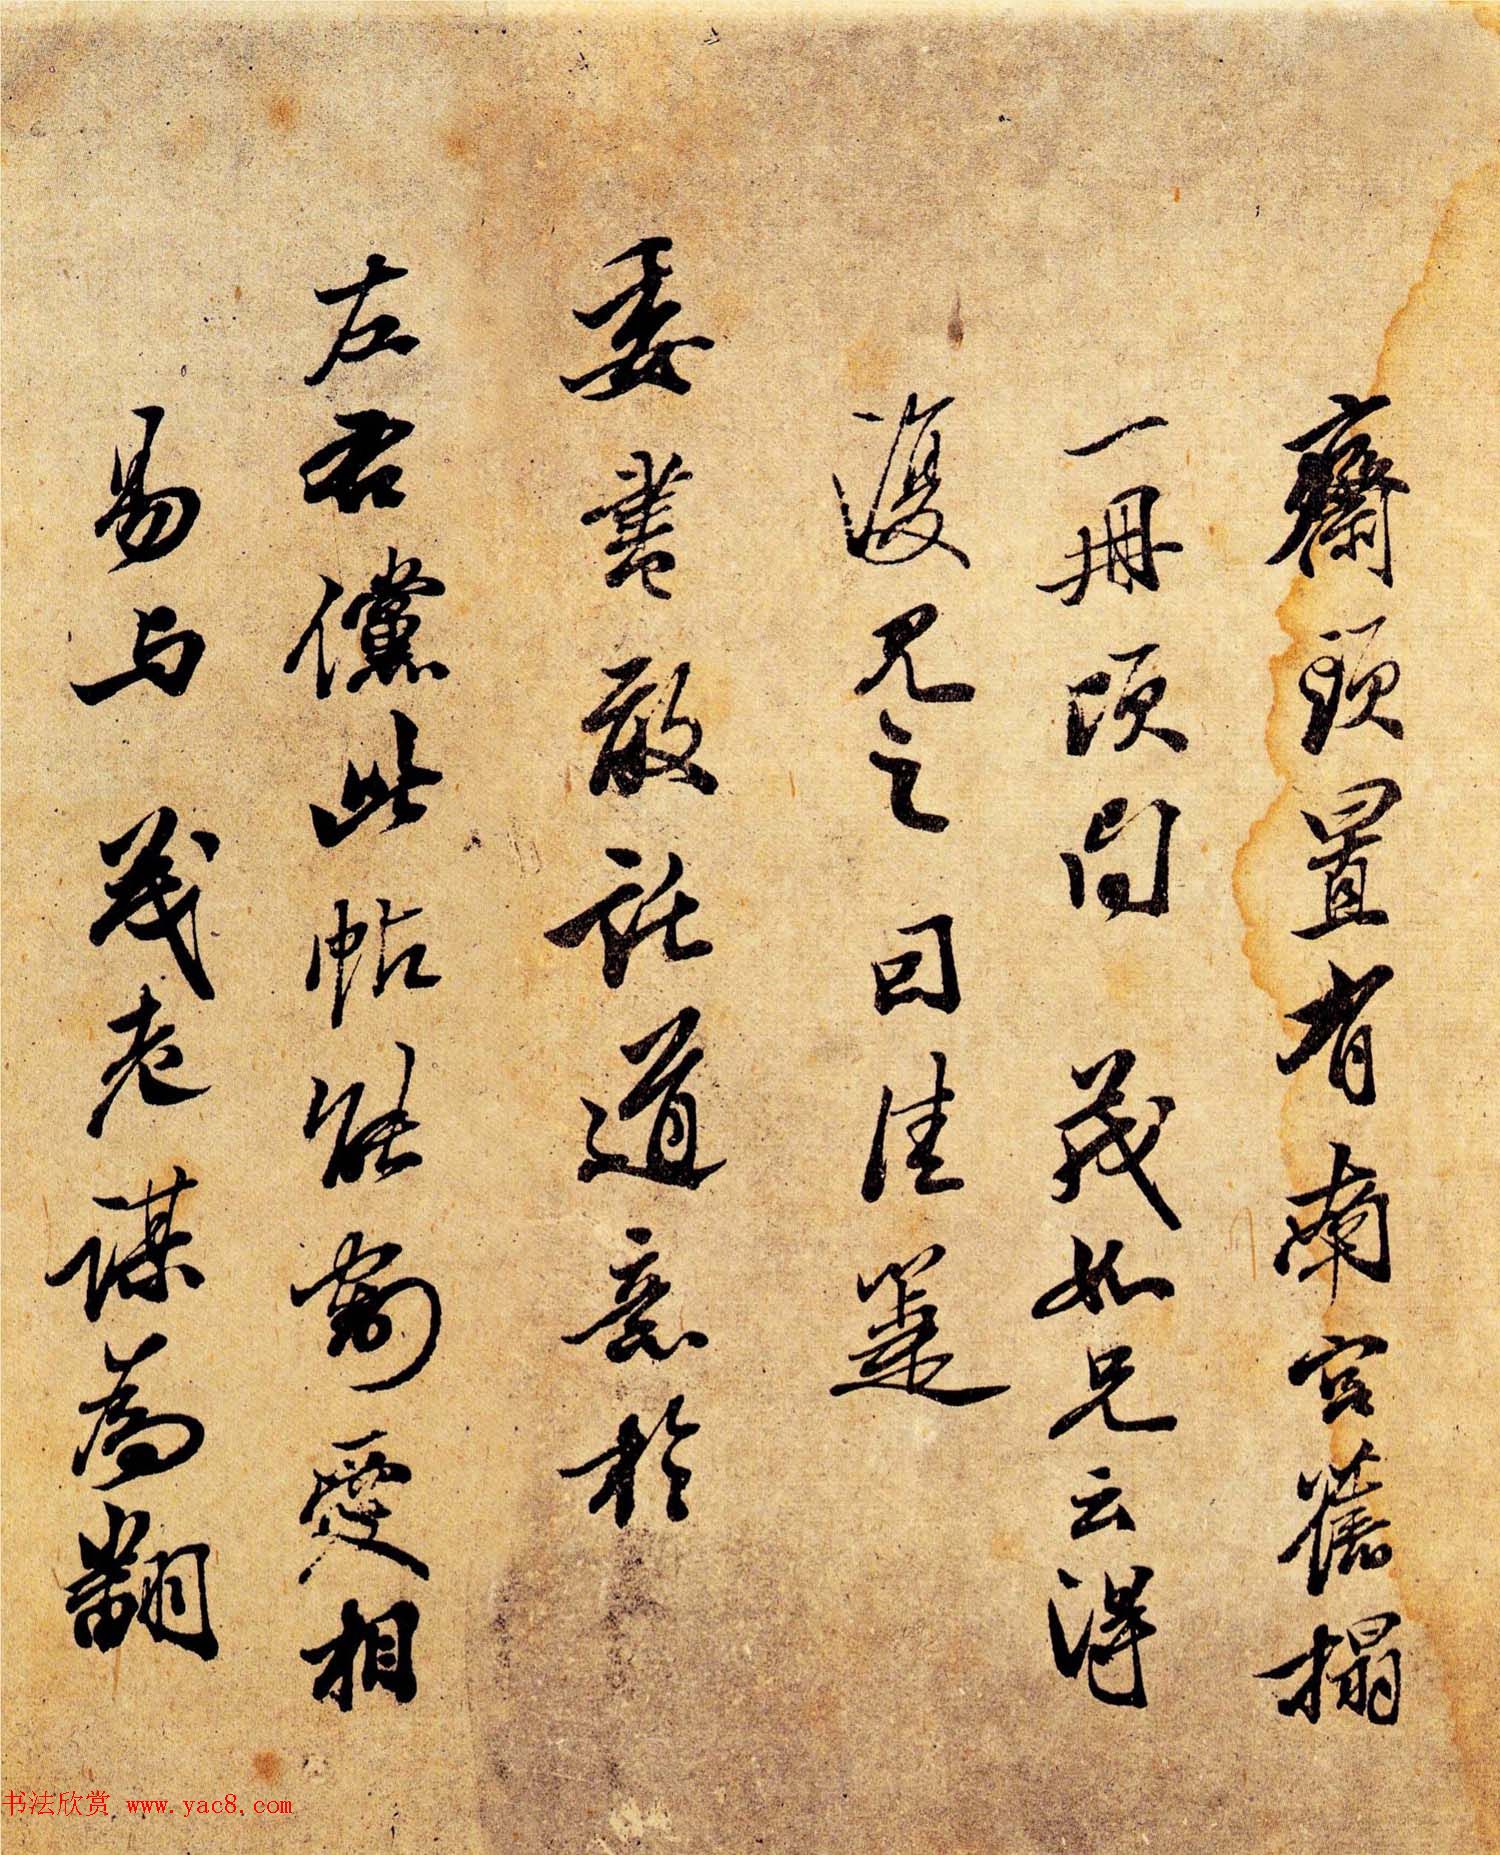 齋頭置有南宮舊搨
一冊頃聞 茂如兄云得
復見之日佳
委書敢託道意於
左右儻此帖能割愛相
易与 茂老謀為翻
书法欣赏 www.yac8.com